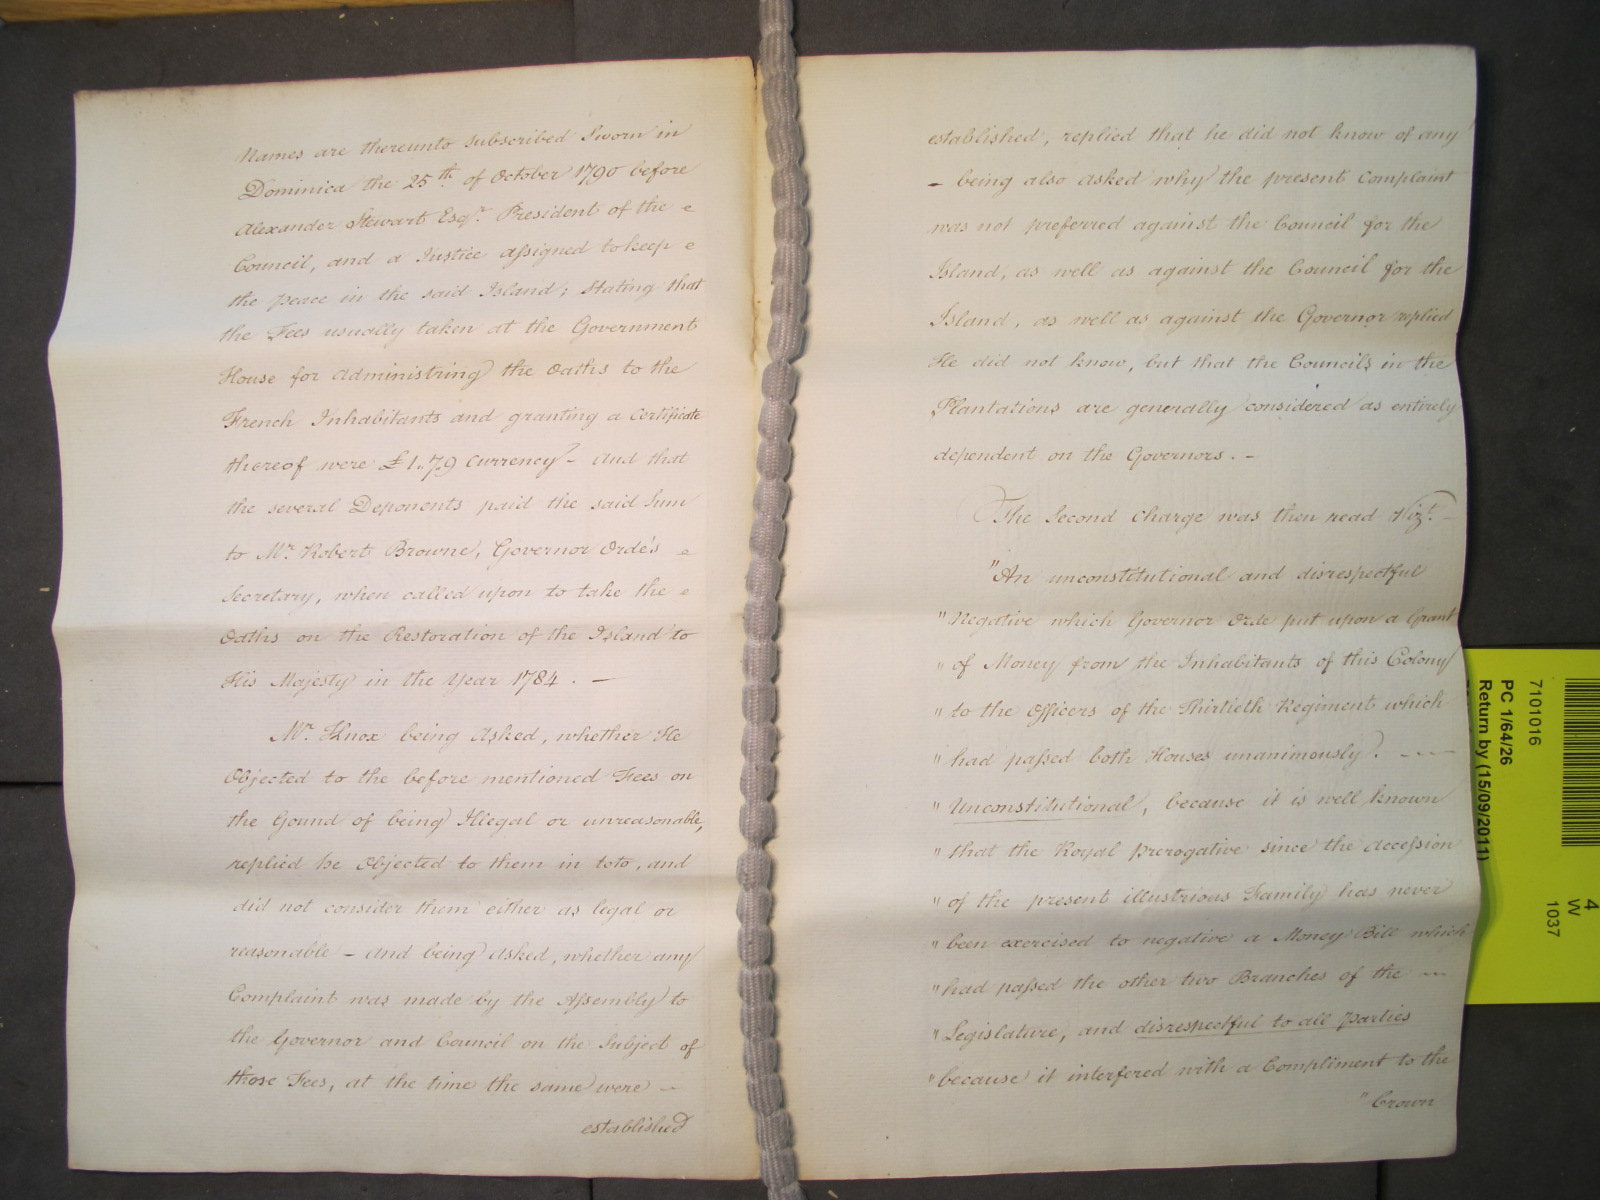 Names are thereunto subscribed Sworn in
Dominica the 25th. of October 1790 before
Alexander Stewart Esqr. President of the
Council, and a Justice assigned to keep
the peace in the said Island; Stating that
the Fees usually taken at the Government
House for administring the Oaths to the
French Inhabitants and granting a Certificate
thereof were £1..7.9 Currency - and that
the several Deponents paid the said Sum
to Mr. Robert Browne, Governor Orde's
Secretary, when called upon to take the
Oaths on the Restoration of the Island to
His Majesty in the Year 1784. —
Mr. Knox being Asked, whether He
Objected to the before mentioned Fees on
the Gound of being Illegal or unreasonable,
replied he Objected to them in toto, and
did not consider them either as legal or
reasonable - and being Asked, whether any
Complaint was made by the Assembly to
the Governor and Council on the Subject of
those Fees, at the time the same were —
established
established, replied that he did not know of any
- being also asked why the present Complaint
was not preferred against the Council for the
Island, as well as against the Council for the
Island, as well as against the Governor replied
He did not know, but that the Councils in the
Plantations are generally considered as entirely
dependent on the Governors. -
The Second Charge was then read Vizt. -
"An unconstitutional and disrespectful
" Negative which Governor Orde put upon a Grant
" of Money from the Inhabitants of this Colony
" to the Officers of the Thirtieth Regiment which
" had passed both Houses unanimously. —
" Unconstitutional, because it is well known
" that the Royal prerogative since the accession
" of the present illustrious Family has never
" been exercised to negative a Money Bill which
" had passed the other two Branches of the —
" Legislature, and disrespectful to all parties
" because it interfered with a Compliment to the
" Crown
7101016
PC 1/64/26
Return by (15/09/2011)
4
W
1037